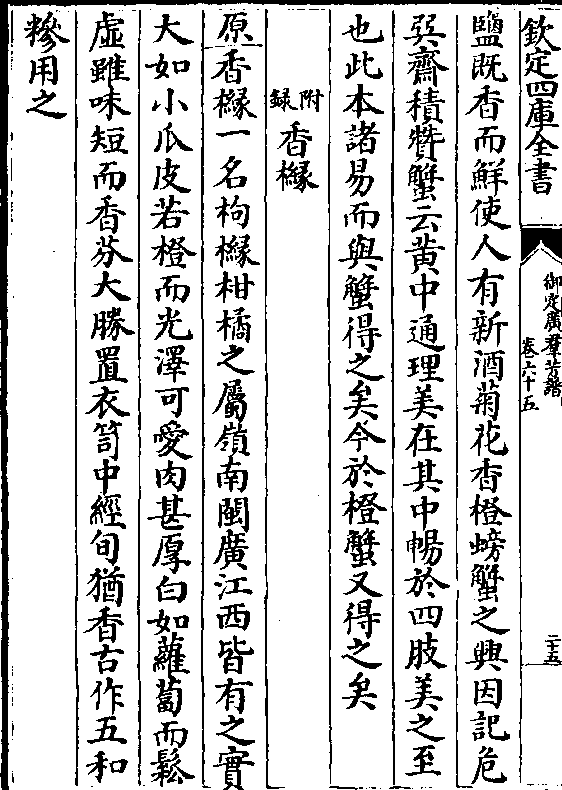 欽定四庫全書
御定廣羣芳譜
卷六十五
二十五
鹽既香而鮮使人有新酒菊花香橙螃蟹之興因記危
巽齋積贊蟹云黄中通理美在其中暢於四肢美之至
也此本諸易而與蟹得之矣今於橙蟹又得之矣
附録香櫞
原香櫞一名枸櫞柑橘之屬嶺南閩廣江西皆有之實
大如小瓜皮若橙而光澤可愛肉甚厚白如蘿蔔而鬆
虛雖味短而香芬大勝置衣笥中經旬猶香古作五和
糝用之